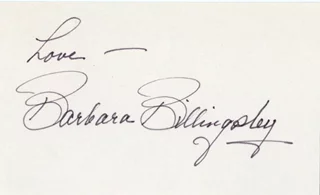 Love —
Barbara Billingsley